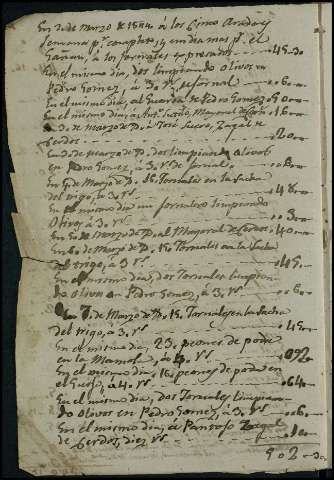 En 2 de Marzo de 1844 á los Cinco Arados y
semana pr. completa, y un dia mas pr. el
Gañan, a los jornales expresados 45.30
En el mismo dia, dos limpiando Olivos en
Pedro Gomez, á 3. rs. de jornal 0.6.0
En el mismo dia, al Guarda de Pedro Gomez 60.0
En el mismo dia, á Mayoral de 16.0
En 3. de Marzo de D. á José Zagal de
Cerdos 20.0
En 5. de Marzo de D. dos limpiando Olivos
en Pedro Gomez, á 3. rs. de jornal 0.6.0
En 5. de Marzo de D. 16. Jornales en la Sacha
del trigo, á 3. rs. 48.0
En el mismo dia un jornalero limpiando
Olivos á 3. rs. 0.3.0
En 6. de Marzo de D. al Mayoral de Cerdos 40.0
En 6. de Marzo de D. 15. Jornales en la Sacha
del trigo, á 3. rs. 45.0
En el mismo dia, dos Jornales limpian
do Olivos en Pedro Gomez, á 3. rs. 0.6.0
En 7. de Marzo de D. 15. Jornales en la Sacha
del trigo, á 3. rs. 45.0
En el mismo dia, 23. peones de poda
en la á 4. rs. 092
En el mismo dia, 16. peones de poda en
el á 4. rs. 064
En el mismo dia, dos Jornales limpian
do Olivos en Pedro Gomez, á 3. rs. 0.6.0
En el mismo dia, á Pantojo Zagal
de Cerdos, diez rs. 10.0
502.30